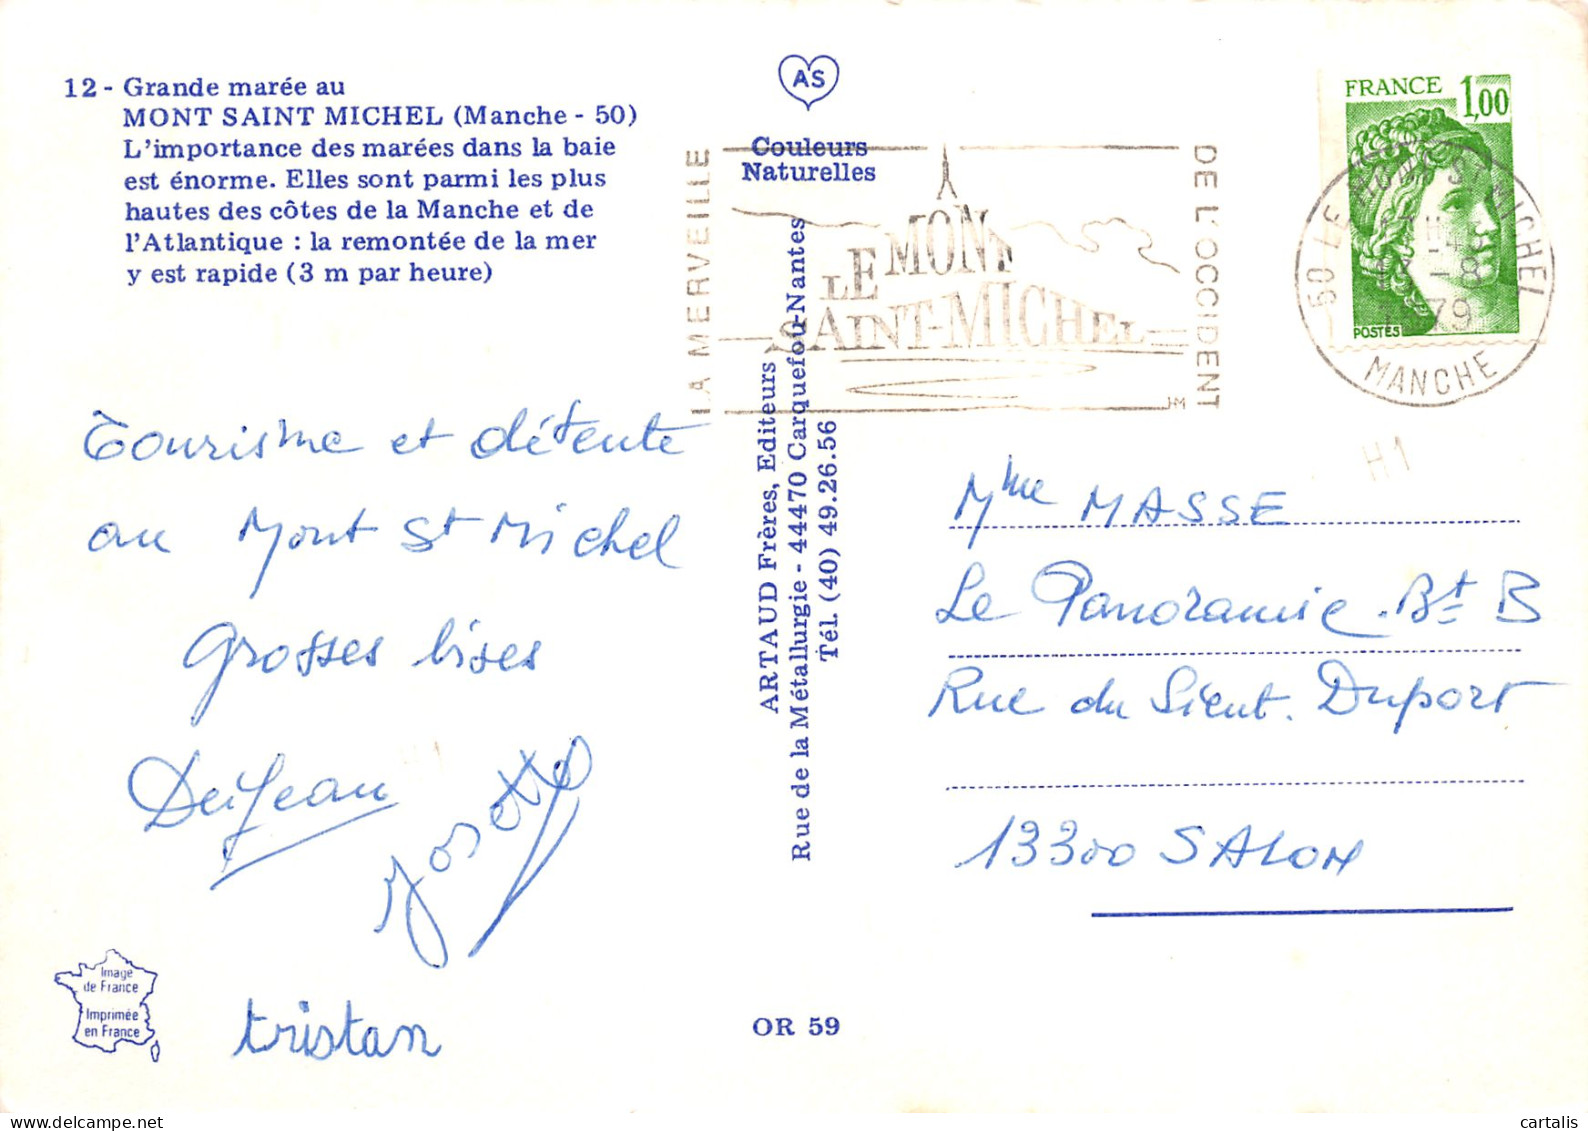 12 - Grande marée au
MONT SAINT MICHEL (Manche - 50)
L'importance des marées dans la baie
est énorme. Elles sont parmi les plus
hautes des côtes de la Manche et de
l'Atlantique : la remontée de la mer
y est rapide (3 m par heure)
AS
Couleurs
Naturelles
LA MERVEILLE
LE MONT
SAINT-MICHEL
DE L'OCCIDENT
FRANCE 1,00
POSTES
50 LE MONT ST MICHEL
MANCHE
79
H1
Tourisme et détente
au Mont St Michel
Grosses bises
tristan
ARTAUD Frères, Editeurs
Rue de la Métallurgie - 44470 Carquefou-Nantes
Tél. (40) 49.26.56
Mme MASSE
Le Panoramic. Bt B
Rue du Duport
13300 SALON
Image
de France
Imprimée
en France
OR 59
delcampe.net
cartalis